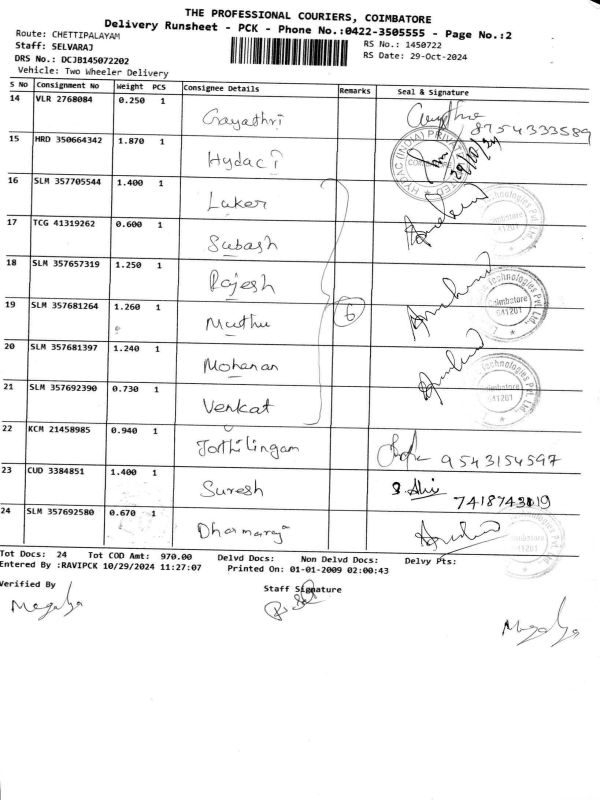 THE PROFESSIONAL COURIERS, COIMBATORE
Delivery Runsheet - PCK - Phone No.:0422-3505555 - Page No.:2
Route: CHETTIPALAYAM
Staff: SELVARAJ
RS No.: 1450722
DRS No.: DCJB145072202
RS Date: 29-Oct-2024
Vehicle: Two Wheeler Delivery
S No Consignment No Weight PCS Consignee Details Remarks Seal & Signature
14 VLR 2768084 0.250 1 Gayathri 8754333589
15 HRD 350664342 1.870 1 Hydac
16 SLM 357705544 1.400 1 Laker
17 TCG 41319262 0.600 1 Subash
18 SLM 357657319 1.250 1 Rajesh
19 SLM 357681264 1.260 1 Muthu 6
20 SLM 357681397 1.240 1 Mohanan
21 SLM 357692390 0.730 1 Venkat
22 KCM 21458985 0.940 1 Jothilingam 9543154597
23 CUD 3384851 1.400 1 Suresh 7418743019
24 SLM 357692580 0.670 1 Dharmaraj
Tot Docs: 24 Tot COD Amt: 970.00 Delvd Docs: Non Delvd Docs: Delvy Pts:
Entered By :RAVIPCK 10/29/2024 11:27:07 Printed On: 01-01-2009 02:00:43
Verified By Staff Signature